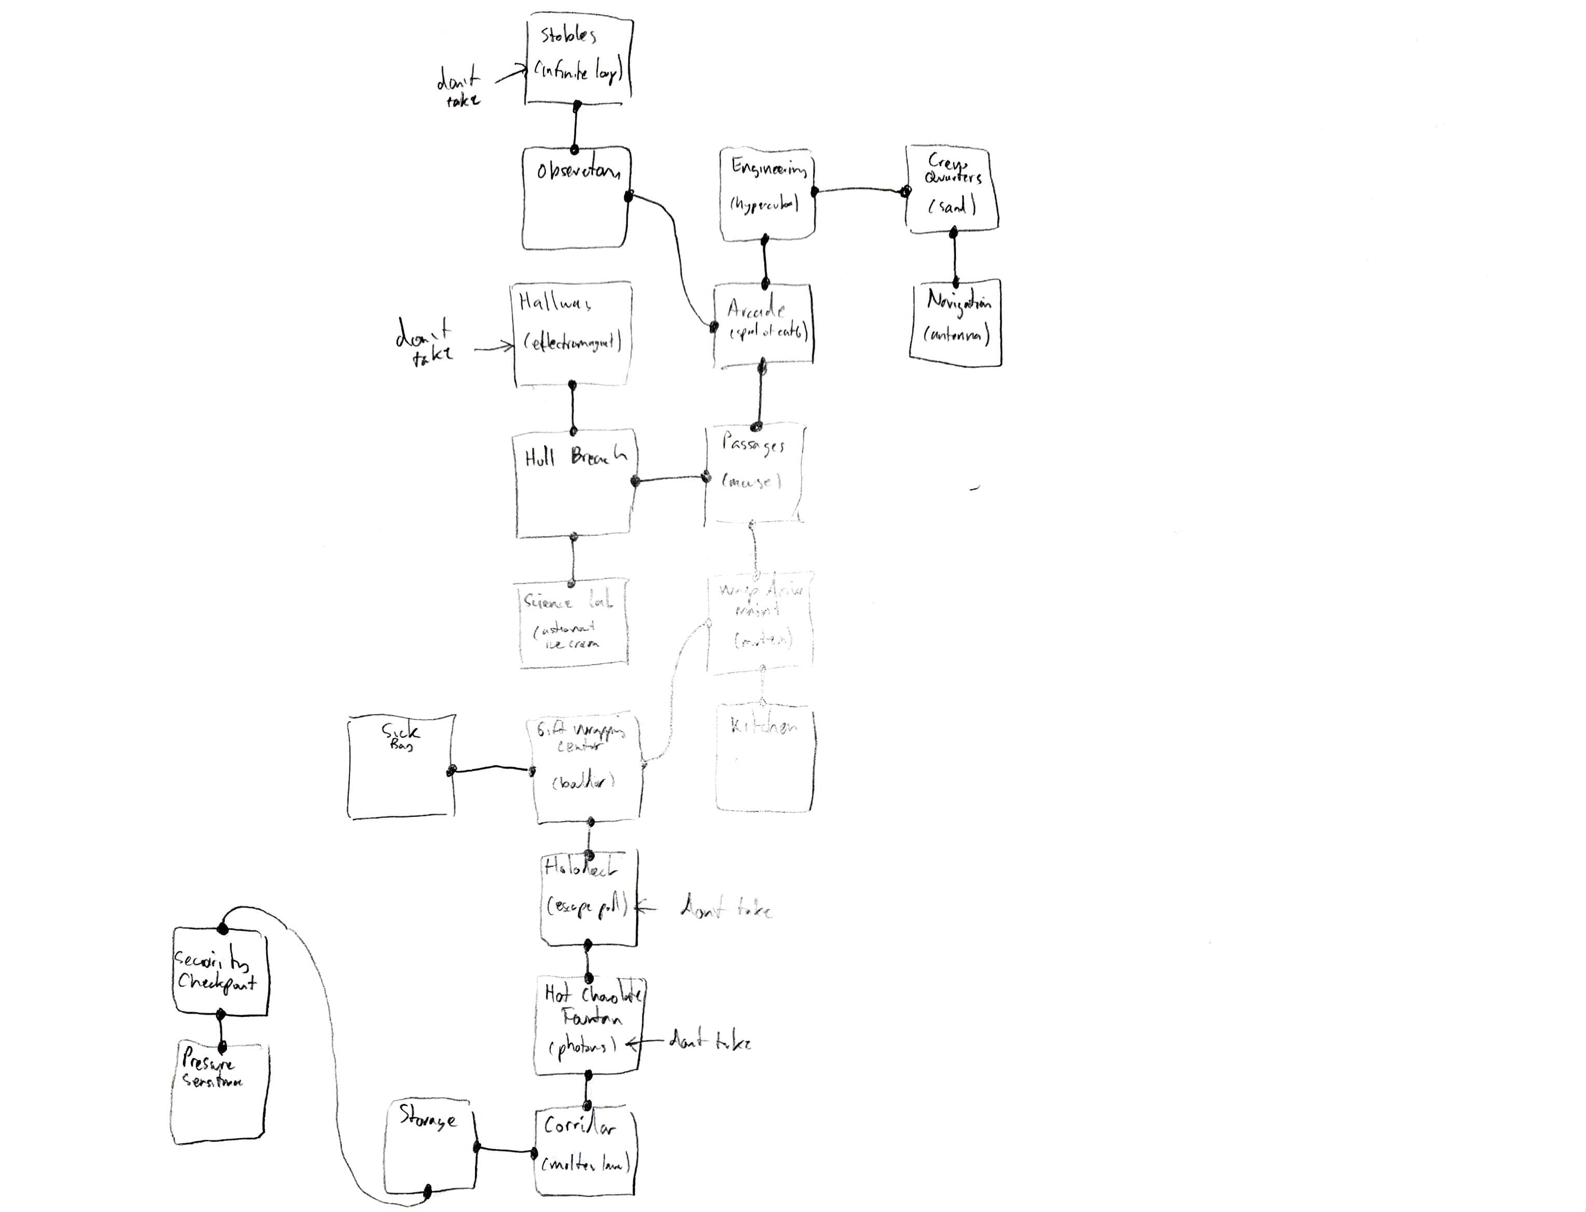 Stables
(infinite loop)
don't
take
Observatory
Engineering
(hypercube)
Crew
Quarters
(sand)
Hallway
(electromagnet)
don't
take
Arcade
(spool of cat6)
Navigation
(antenna)
Hull Breach
Passages
(mouse)
Science Lab
(astronaut
ice cream
Warp Drive
(mutex)
Sick
Bay
Gift Wrapping
Center
(boulder)
Kitchen
Holodeck
(escape pod)
don't take
Security
Checkpoint
Hot Chocolate
Fountain
(photons)
don't take
Pressure
Sensitive
Storage
Corridor
(molten lava)